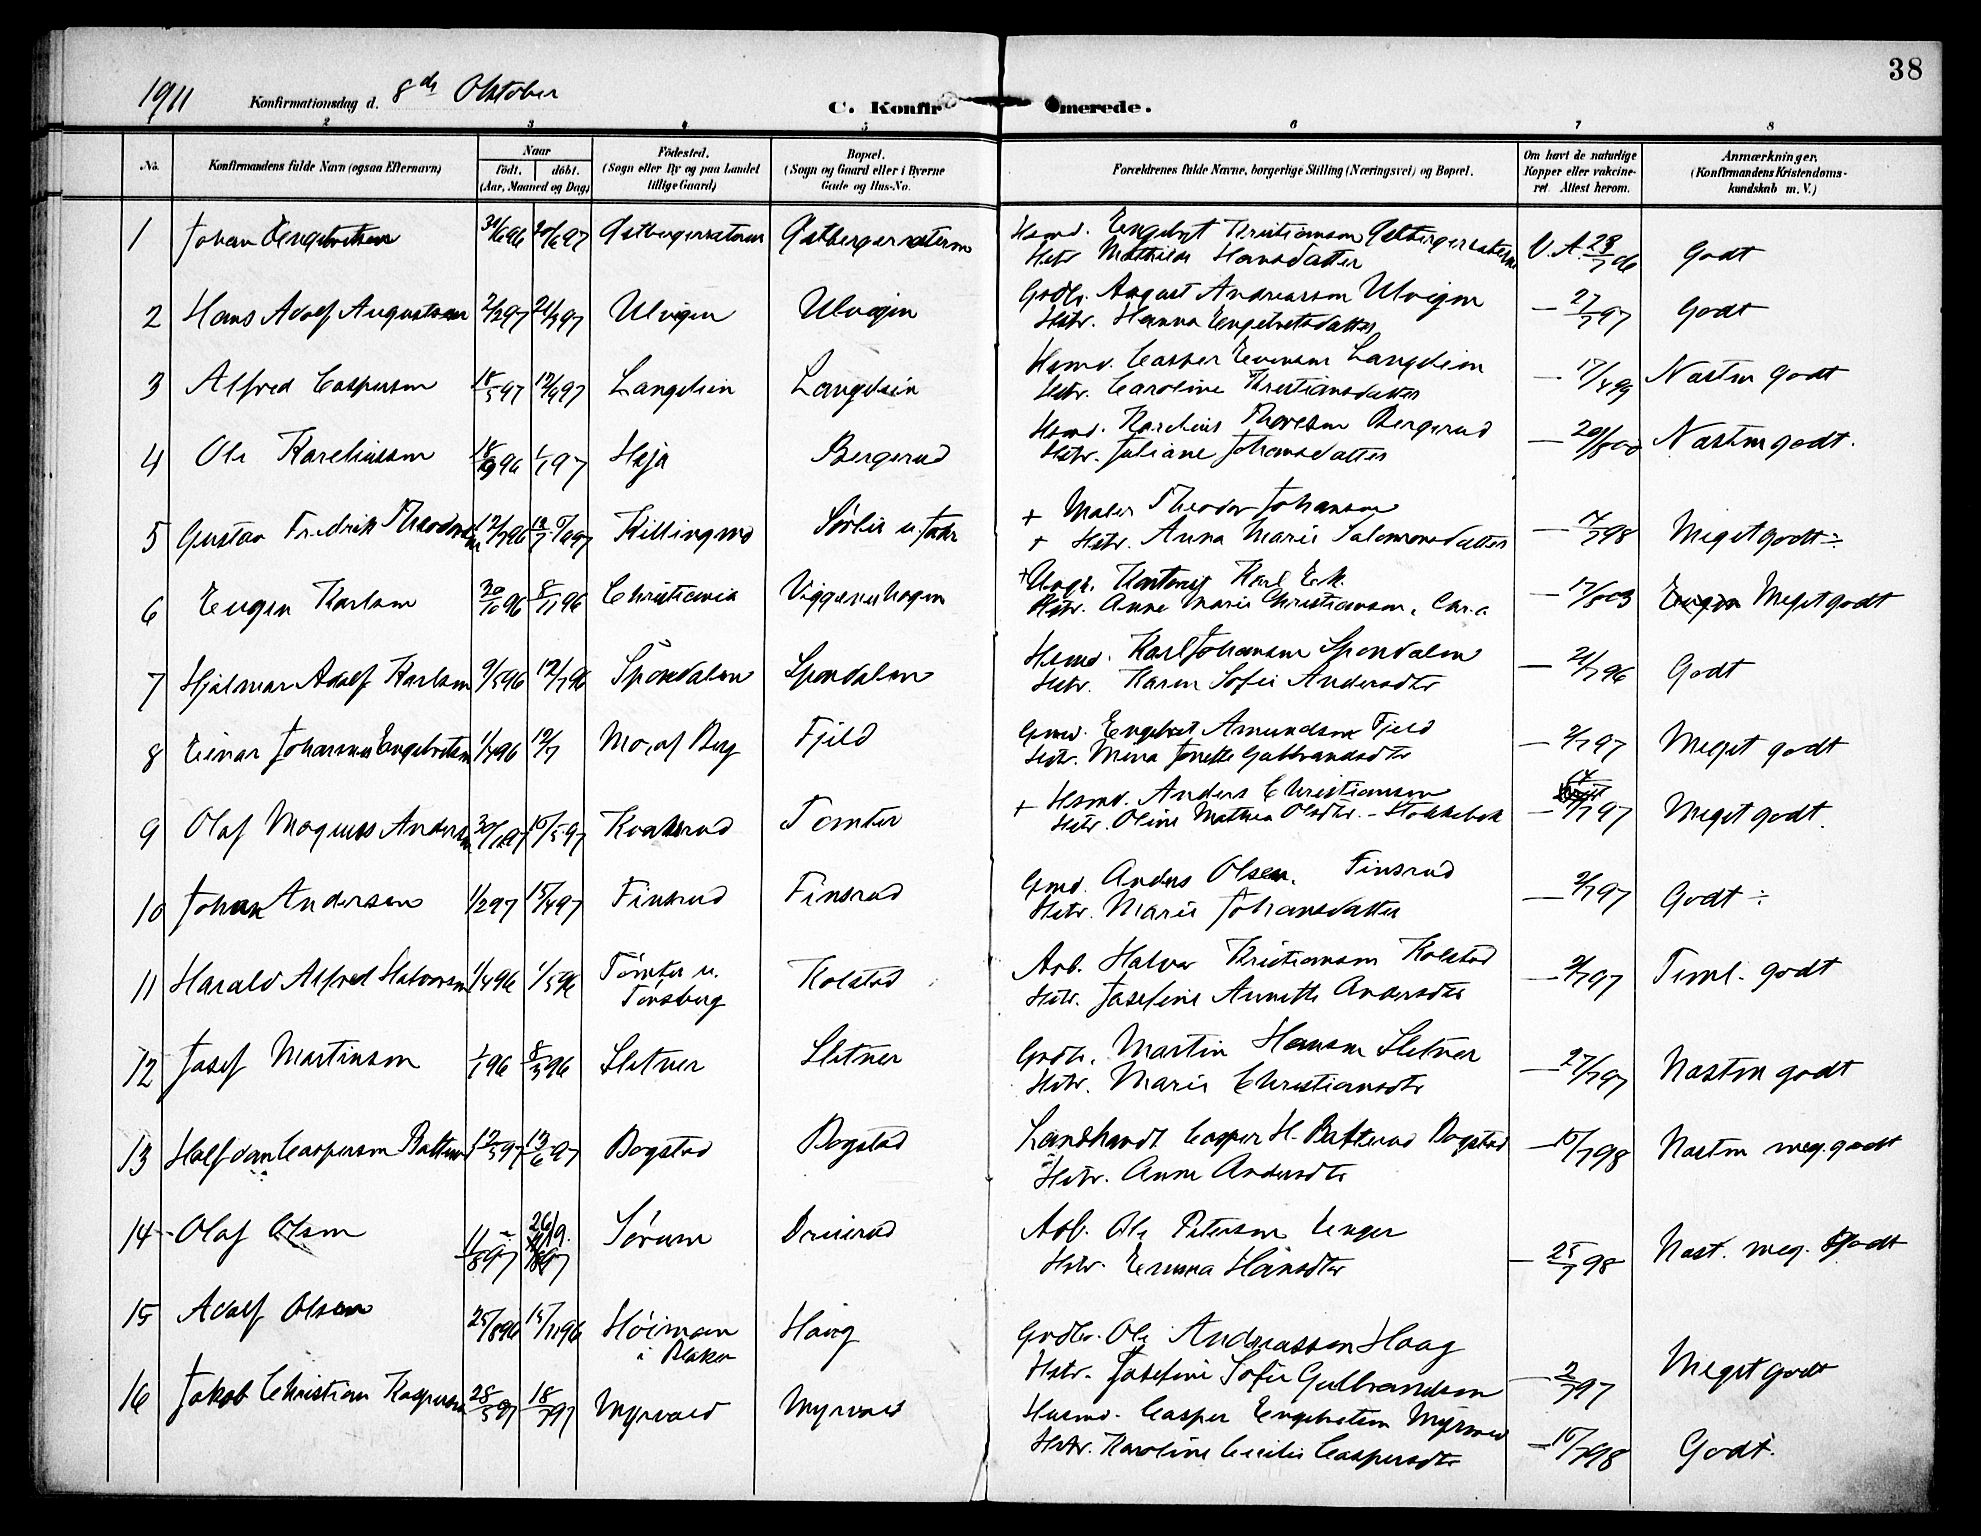 38
1911 Konfirmationsdag d. 8de Oktober C. Konfirmerede.
2 3 4 5 6 7 8
No. Konfirmandens fulde Navn (ogsaa Efternavn) Naar født, døbt. (Aar, Maaned og Dag) Fødested. (Sogn eller By og paa Landet tillige Gaard) Bopæl. (Sogn og Gaard eller i Byerne Gade og Hus-No. Forældrenes fulde Navne, borgerlige Stilling (Næringsvei) og Bopæl. Om havt de naturlige Kopper eller vakcineret. Attest herom. Anmærkninger. (Konfirmandens Kristendomskundskab m. V.)
1 Johan Engebretsen 20/6 97 Østbergersæteren Østbergersæteren Hsmd. Engebret Kristiansen Østbergersæteren V. A. 28/7 06 Godt
Hstr. Mathilde Hansdatter
2 Hans Adolf Augustsen 2/2 97 21/3 97 Ulvigen Ulvigen Grdbr. August Andreassen Ulvigen — 27/7 97 Godt
Hstr. Hanna Engebretsdatter
3 Alfred Caspersen 18/5 97 Langelien Langelien Hsmd. Casper Evensen Langelien — 17/4 99 Næsten godt
Hstr. Caroline Kristiansdatter
4 Ole Kareliussen 18/10 96 1/1 97 Heja Bergerud Hsmd. Karelius Thoresen Bergerud — 20/8 00 Næsten godt.
Hstr. Juliane Johansdatter
5 Gustav Fredrik Theodorsen 12/7 96 Killingmo Sørlie u. + Maler Theodor Johansen — 17/7 98 Meget godt ÷
+ Hstr. Anna Marie Salomonsdatter
6 Eugen Karlsen 30/10 96 8/11 96 Christiania Viggenuhagen + Karl Erk. — 17/8 03 Meget godt
Hstr. Anne Marie Christiansen,
7 Hjalmar Adolf Karlsen 9/5 96 12/7 96 Spondalen Spondalen Hsmd. Karl Johansen Spondalen — 21/7 96 Godt
Hstr. Karen Sofie Andersdtr
8 Einar Johannes Engebretsen 1/4 96 12/7 Mo, af Berg Fjeld Gmd. Engebret Amundsen Fjeld — 2/7 97 Meget godt
Hstr. Mina Jonette Gulbrandsdtr
9 Olaf Magnus Andersen 30/1 97 Kvakrud Tomter + Hsmd. Anders Christiansen — 97 Meget godt.
Hstr. Oline Mathea Olsdtr. – Stokkebek
10 Johan Andersen 1/2 97 15/4 97 Finsrud Finsrud Gmd. Anders Olsen. Finsrud — 2/7 97 Godt ÷
Hstr. Marie Johansdatter
11 Harald Alfred Halvorsen 1/4 96 1/5 96 Tomter u. Kolstad Arb. Halvor Kristiansen Kolstad — 2/7 97 Teml. godt
Tønsberg Hstr. Josefine Annette Andersdtr
12 Josef Martinsen 1/1 96 8/3 96 Sletner Sletner Grdbr. Martin Hansen Sletner — 27/7 97 Næsten godt
Hstr. Marie Christiansdtr
13 Halfdan Caspersen Batterud 12/5 97 13/6 97 Bogstad Bogstad Landhandl. Casper H. Batterud Bogstad — 15/7 98 Næsten meg. godt
Hstr. Anne Andersdtr
14 Olaf Olsen 11/8 97 26/9. Sørum Arb. Ole Petersen Enger — 25/7 98 Næst. meg. Godt
Hstr. Emma Hansdtr
15 Adolf Olsen 25/8 96 15/11 96 Høiman Haug Grdbr. Ole Andreassen Haag — 2/7 97 Meget godt
i Blaker Hstr. Josefine Sofie Gulbrandsen
16 Jakob Christian Kaspersen 28/5 97 18/7 97 Myrvold Myrvold Husmd. Casper Engebretsen Myrvold — 15/7 98 Godt.
Hstr. Karoline Cecilie Caspersdtr